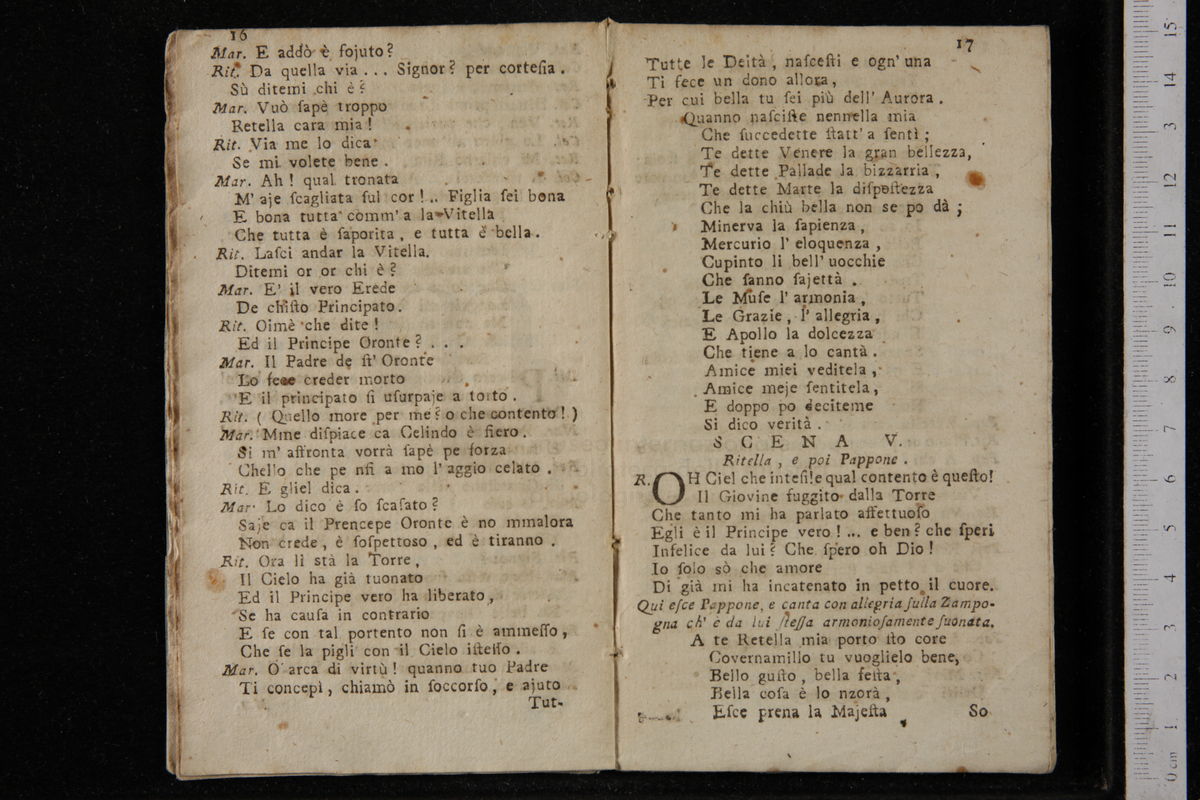 16
Mar. E addò è fojuto?
Rit. Da quella via . . . Signor? per corteſia .
Sù ditemi chi è?
Mar. Vuò ſapè troppo
Retella cara mia!
Rit. Via me lo dica
Se mi volete bene .
Mar. Ah! qual tronata
M' aje ſcagliata ful cor! .. Figlia ſei bona
E bona tutta comm' a la Vitella
Che tutta è ſaporita , e tutta è bella .
Rit. Laſci andar la Vitella.
Ditemi or or chi è?
Mar. E' il vero Erede
De chiſto Principato.
Rit. Oimè che dite!
Ed il Principe Oronte? . . .
Mar. Il Padre de ſt' Oronte
Lo fece creder morto
E il principato ſi uſurpaje a torto .
Rit. ( Quello more per me? o che contento! )
Mar. Mme diſpiace ca Celindo è fiero .
Si m' affronta vorrà ſapè pe forza
Chello che pe nſi a mo l' aggio celato .
Rit. E gliel dica .
Mar. Lo dico è ſo ſcaſato?
Saje ca il Prencepe Oronte è no mmalora
Non crede , è ſoſpettoso , ed è tiranno .
Rit. Ora li stà la Torre ,
Il Cielo ha già tuonato
Ed il Principe vero ha liberato ,
Se ha cauſa in contrario
E ſe con tal portento non ſi è ammeſſo ,
Che ſe la pigli con il Cielo iſteſſo .
Mar. O arca di virtù! quanno tuo Padre
Ti concepì , chiamò in ſoccorſo , e ajuto
Tut-
17
Tutte le Deità , naſceſti e ogn' una
Ti fece un dono allora ,
Per cui bella tu ſei più dell' Aurora .
Quanno naſciſte nennella mia
Che ſuccedette ſtatt' a ſentì ;
Te dette Venere la gran bellezza,
Te dette Pallade la bizzarria ,
Te dette Marte la diſpoſtezza
Che la chiù bella non se po dà ;
Minerva la ſapienza ,
Mercurio l' eloquenza ,
Cupinto li bell' uocchie
Che fanno ſajettà .
Le Muſe l' armonia ,
Le Grazie , l' allegria ,
E Apollo la dolcezza
Che tiene a lo cantà .
Amice miei veditela ,
Amice meje ſentitela ,
E doppo po deciteme
Si dico verità .
S C E N A V.
Ritella , e poi Pappone .
R. OH Ciel che inteſi!e qual contento è queſto!
Il Giovine fuggito dalla Torre
Che tanto mi ha parlato affettuoſo
Egli è il Principe vero! ... e ben? che ſperi
Infelice da lui? Che ſpero oh Dio!
Io ſolo sò che amore
Di già mi ha incatenato in petto il cuore.
Qui eſce Pappone, e canta con allegria ſulla Zampo-
gna ch' è da lui ſteſſa armonioſamente ſuonata.
A te Retella mia porto ſto core
Covernamillo tu vuoglielo bene,
Bello guſto , bella feſta ,
Bella coſa è lo nzorà ,
Eſce prena la Majeſta
So